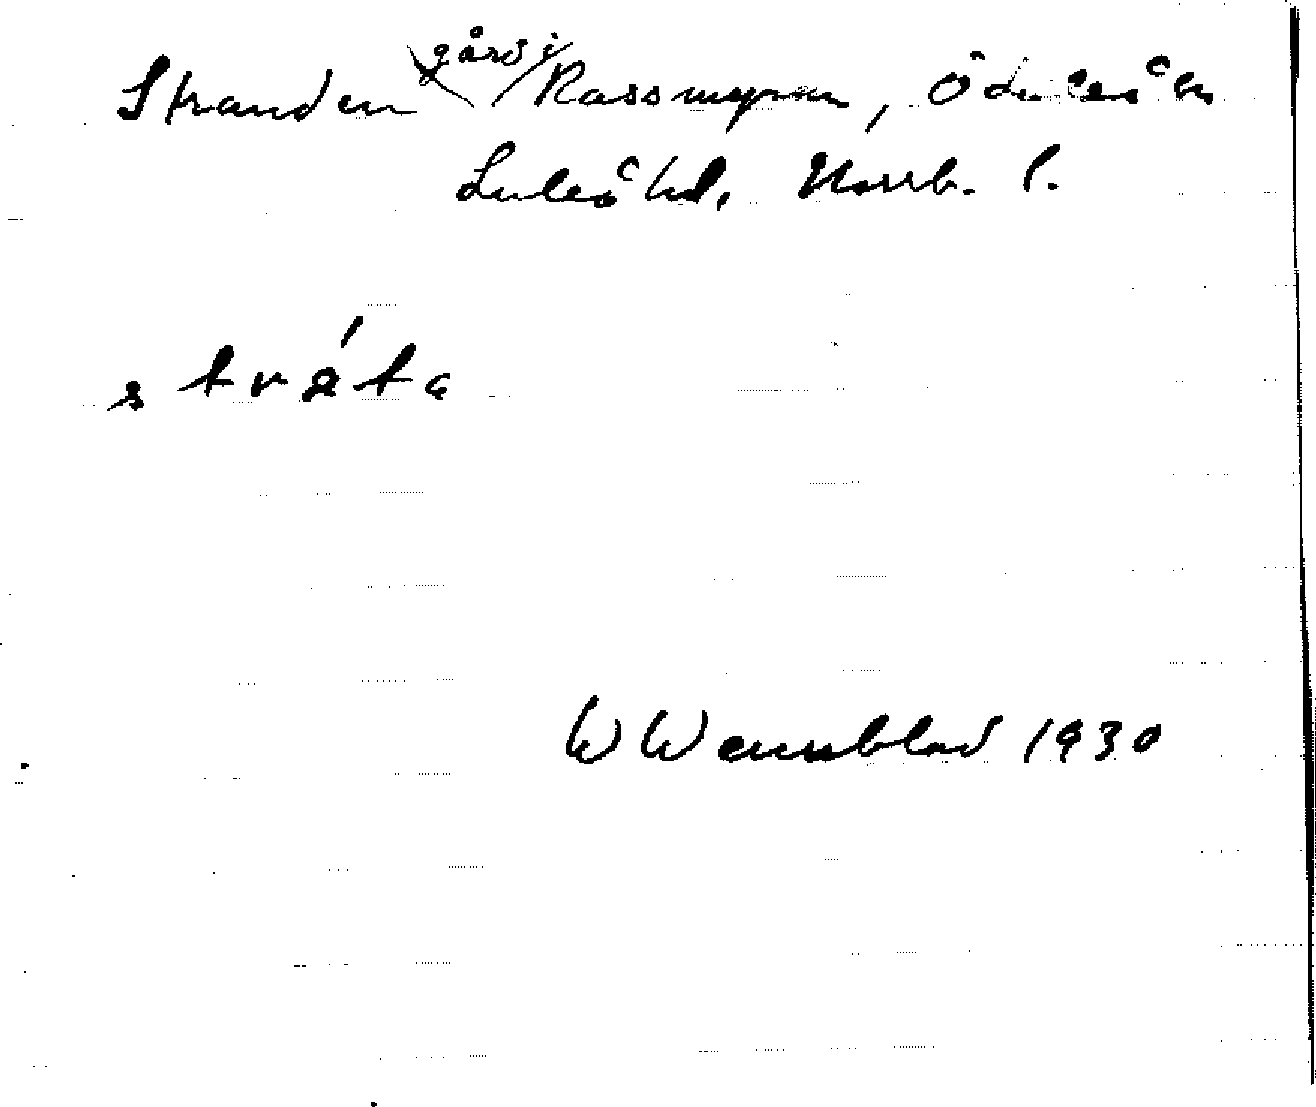 Stranden gård i Rassmyran, Öduleå sn
Luleå hd, Norrb. l.
strá́ta
W Wennblad 1930